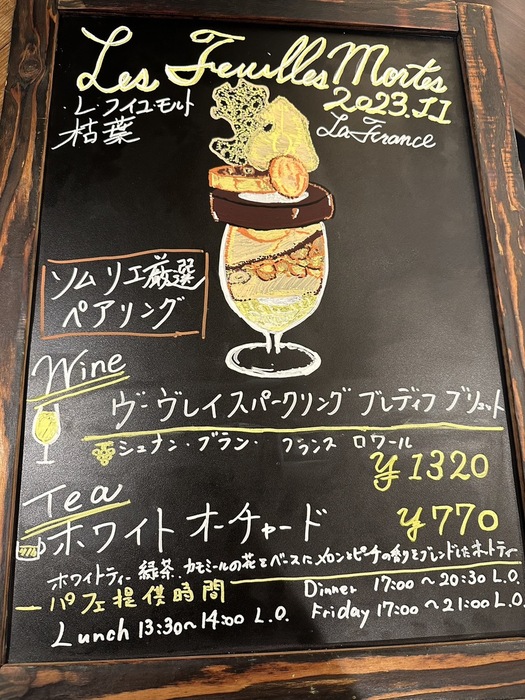 Les Feuilles Mortes
L・フイユ・モルト
2023.11
枯葉
La France
ソムリエ厳選
ペアリング
Wine
ヴーヴレイスパークリング ブレディフ ブリュット
シュナン・ブラン・ フランス ロワール
¥1320
Tea
ホワイトオーチャード ¥770
ホワイトティー 緑茶.カモミールの花をベースにメロンとピーチの香りをブレンドしたホットティー
パフェ提供時間
Dinner 17:00～20:30 L.O.
Lunch 13:30～14:00 L.O.
Friday 17:00～21:00 L.O.